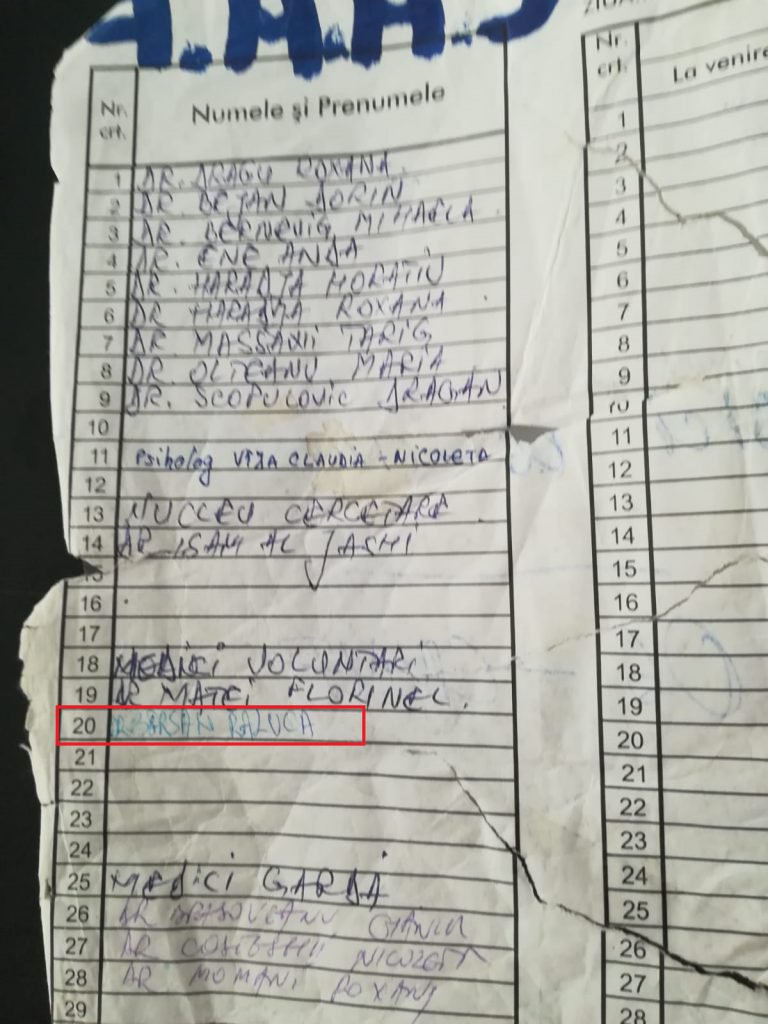 Nr. crt. Numele și Prenumele
1 DR. DRAGU ROXANA
2 DR. BEJAN SORIN
3 DR. BERNEVIG MIHAELA
4 DR. ENE ANDA
5 DR. HARADJA HORATIU
6 DR HARADJA ROXANA
7 DR MASSADII TARIG
8 DR. OLTEANU MARIA
9 DR. SCOPULOVIC DRAGAN
10
11 Psiholog VIJA CLAUDIA-NICOLETA
12
13 NUCLEU CERCETARE
14 DR ISAM AL JASHI
15
16
17
18 MEDICI VOLUNTARI
19 DR MATEI FLORINEL.
20 DR BARSAN RALUCA
21
22
23
24
25 MEDICI GARDA
26 DR BRASOVEANU
27 DR NICOLETA
28 DR MOMANI ROXANA
29
Nr. crt. La venire
1
2
3
4
5
6
7
8
9
10
11
12
13
14
15
16
17
18
19
20
21
22
23
24
25
26
27
28